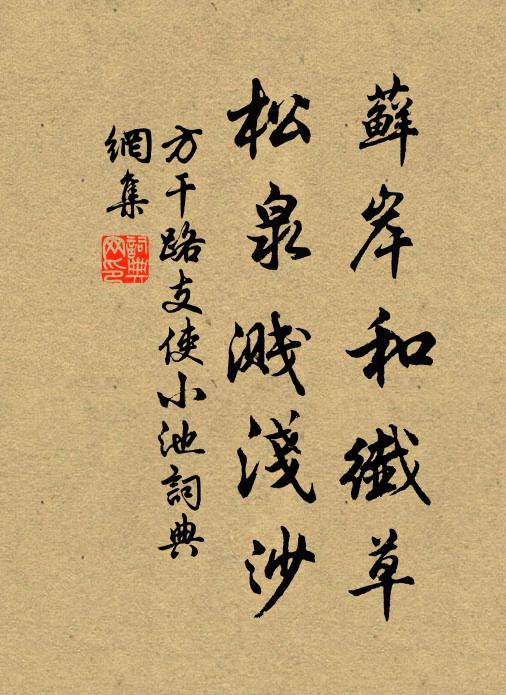 蘚岸和纖草
松泉濺淺沙
方干路支使小池詞典
網集
詞典
网印